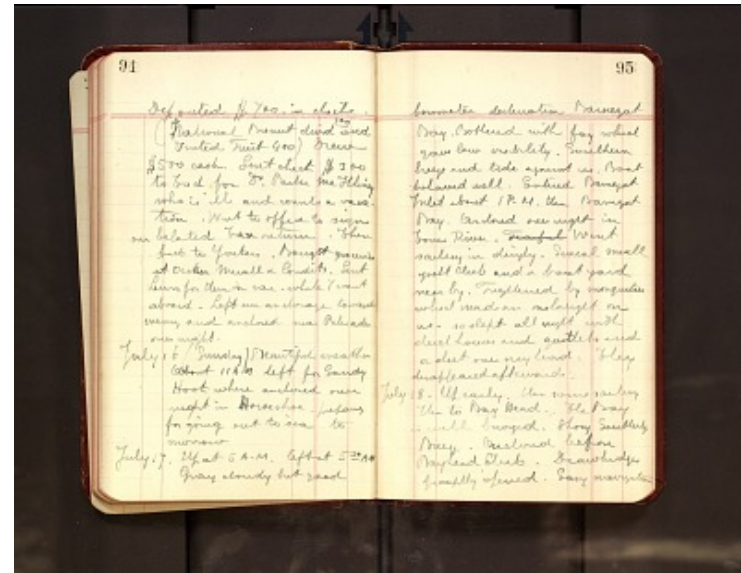 94
Deposited $700. in checks.
(National Biscuit divid and
United Fruit 400) Drew
$500 cash. Sent check $300
to Fred for Dr. Parker
who is ill and wants a vaca-
tion. Went to office to sign
our belated tax return. Then
back to Yonkers. Bought groceries
at Acker Merrall & Condits. Sent
for them in car while I went
aboard. Left our anchorage toward
evening and anchored near Palisades
over night.
July 16 (Sunday) Beautiful weather
About 11 AM left for Sandy
Hook where anchored over
night in Horseshoe, prepare
for going out to sea to
morrow
July 17. Up at 5 A.M. Left at 5 AM
Gray cloudy but good
95
barometer destination Barnegat
Bay. Bothered with fog which
gave low visibility. Southern
breeze and tide against us. Boat
behaved well. Entered Barnegat
Inlet about 1 P.M. then Barnegat
Bay. Anchored over night in
Toms River. Went
sailing in dinghy. Several small
yacht club and a boat yard
near by. Frightened by mosquitos
which made an onslaught on
us - so slept all night with
closed houses and
a
disappeared afterwards.
July 18 - Up early. Then some sailing
Then to Bay Head. The Bay
is well buoyed. Strong Southerly
Breeze. Anchored before
Bayhead Club. Drawbridges
promptly opened. Easy navigation